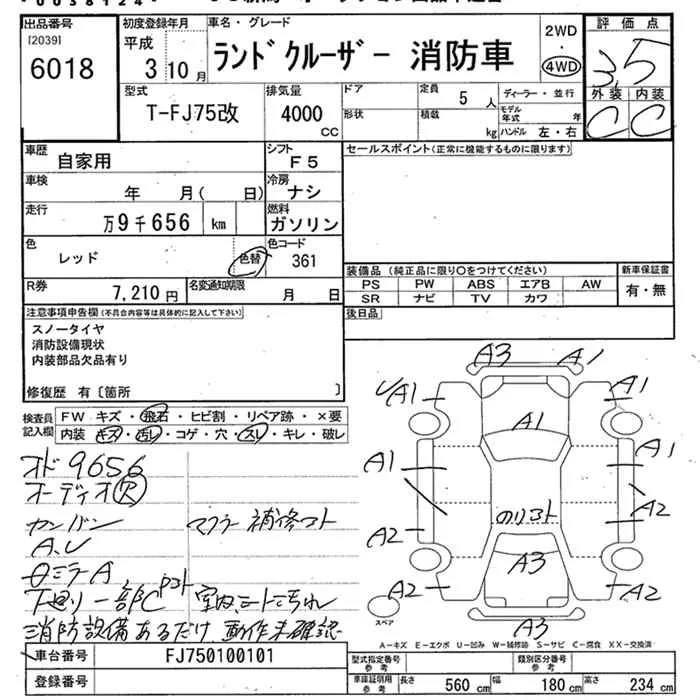 出品番号
[2039]
6018
初度登録年月
平成
3 10月
車名・グレード
ランドクルーザー 消防車
2WD
・
4WD
評価点
3.5
外装 内装
C C
型式
T-FJ75改
排気量
4000
CC
ドア
形状
定員
5 人
積載
kg
ディーラー・並行
モデル年式 年
ハンドル 左・右
車歴
自家用
シフト
F5
セールスポイント(正常に機能するものに限ります)
車検
年 月( 日)
冷房
ナシ
走行
万9千656 km
燃料
ガソリン
色
レッド
色替
色コード
361
R券
7,210 円
名変通知期限
月 日
装備品 (純正品に限り○をつけてください)
PS PW ABS エアB AW
SR ナビ TV カワ
新車保証書
有・無
後日品
注意事項申告欄(不具合内容等は具体的に記入して下さい)
スノータイヤ
消防設備現状
内装部品欠品有り
修復歴 有〔箇所 〕
検査員記入欄
FW キズ・飛石・ヒビ割・リペア跡・×要
内装 キズ・汚レ・コゲ・穴・スレ・キレ・破レ
オド9656
オーディオ欠
カンバン マフラー補修コト
A、U
ミラーA
下廻り一部C 室内シート汚れ
消防設備あるだけ 動作未確認
A3 A1
A1 A1
A1
A1 A1
A2 A2
A3
A2 A2
A3
スペア
A-キズ E-エクボ U-凹み W-補修跡 S-サビ C-腐食 XX-交換済
車台番号
FJ750100101
登録番号
型式指定番号
参考
類別区分番号
参考
車庫証明用
参考
長さ 560 cm 幅 180 cm 高さ 234 cm